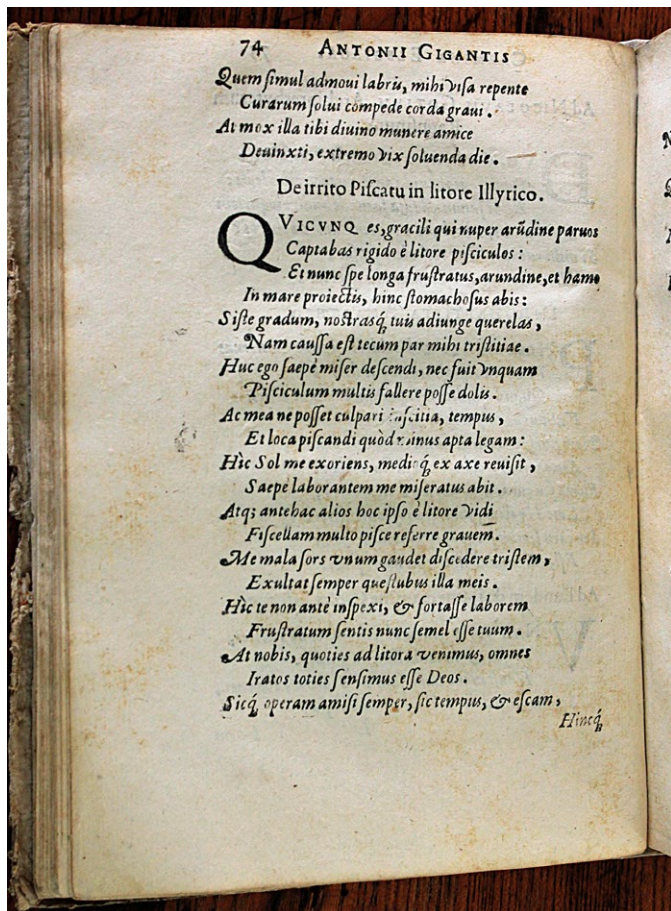 74 ANTONII GIGANTIS
Quem simul admoui labris, mihi visa repente
Curarum solui compede corda graui.
At mox illa tibi diuino munere amice
Deuinxti, extremo vix soluenda die.
De irrito Piscatu in litore Illyrico.
QVICVNQ es, gracili qui nuper arũdine paruos
Captabas rigido è litore pisciculos:
Et nunc spe longa frustratus, arundine, et hamo
In mare proiectis, hinc stomachosus abis:
Siste gradum, nostrasq́; tuis adiunge querelas,
Nam caussa est tecum par mihi tristitiae.
Huc ego saepè miser descendi, nec fuit vnquam
Pisciculum multis fallere posse dolis.
Ac mea ne posset culpari inscitia, tempus,
Et loca piscandi quòd minus apta legam:
Hìc Sol me exoriens, medioq́; ex axe reuisit,
Saepe laborantem me miseratus abit.
Atq; antehac alios hoc ipso è litore vidi
Fiscellam multo pisce referre grauem.
Me mala sors vnum gaudet discedere tristem,
Exultat semper questubus illa meis.
Hìc te non antè inspexi, & fortasse laborem
Frustratum sentis nunc semel esse tuum.
At nobis, quoties ad litora venimus, omnes
Iratos toties sensimus esse Deos.
Sicq́; operam amisi semper, sic tempus, & escam,
Hincq́;